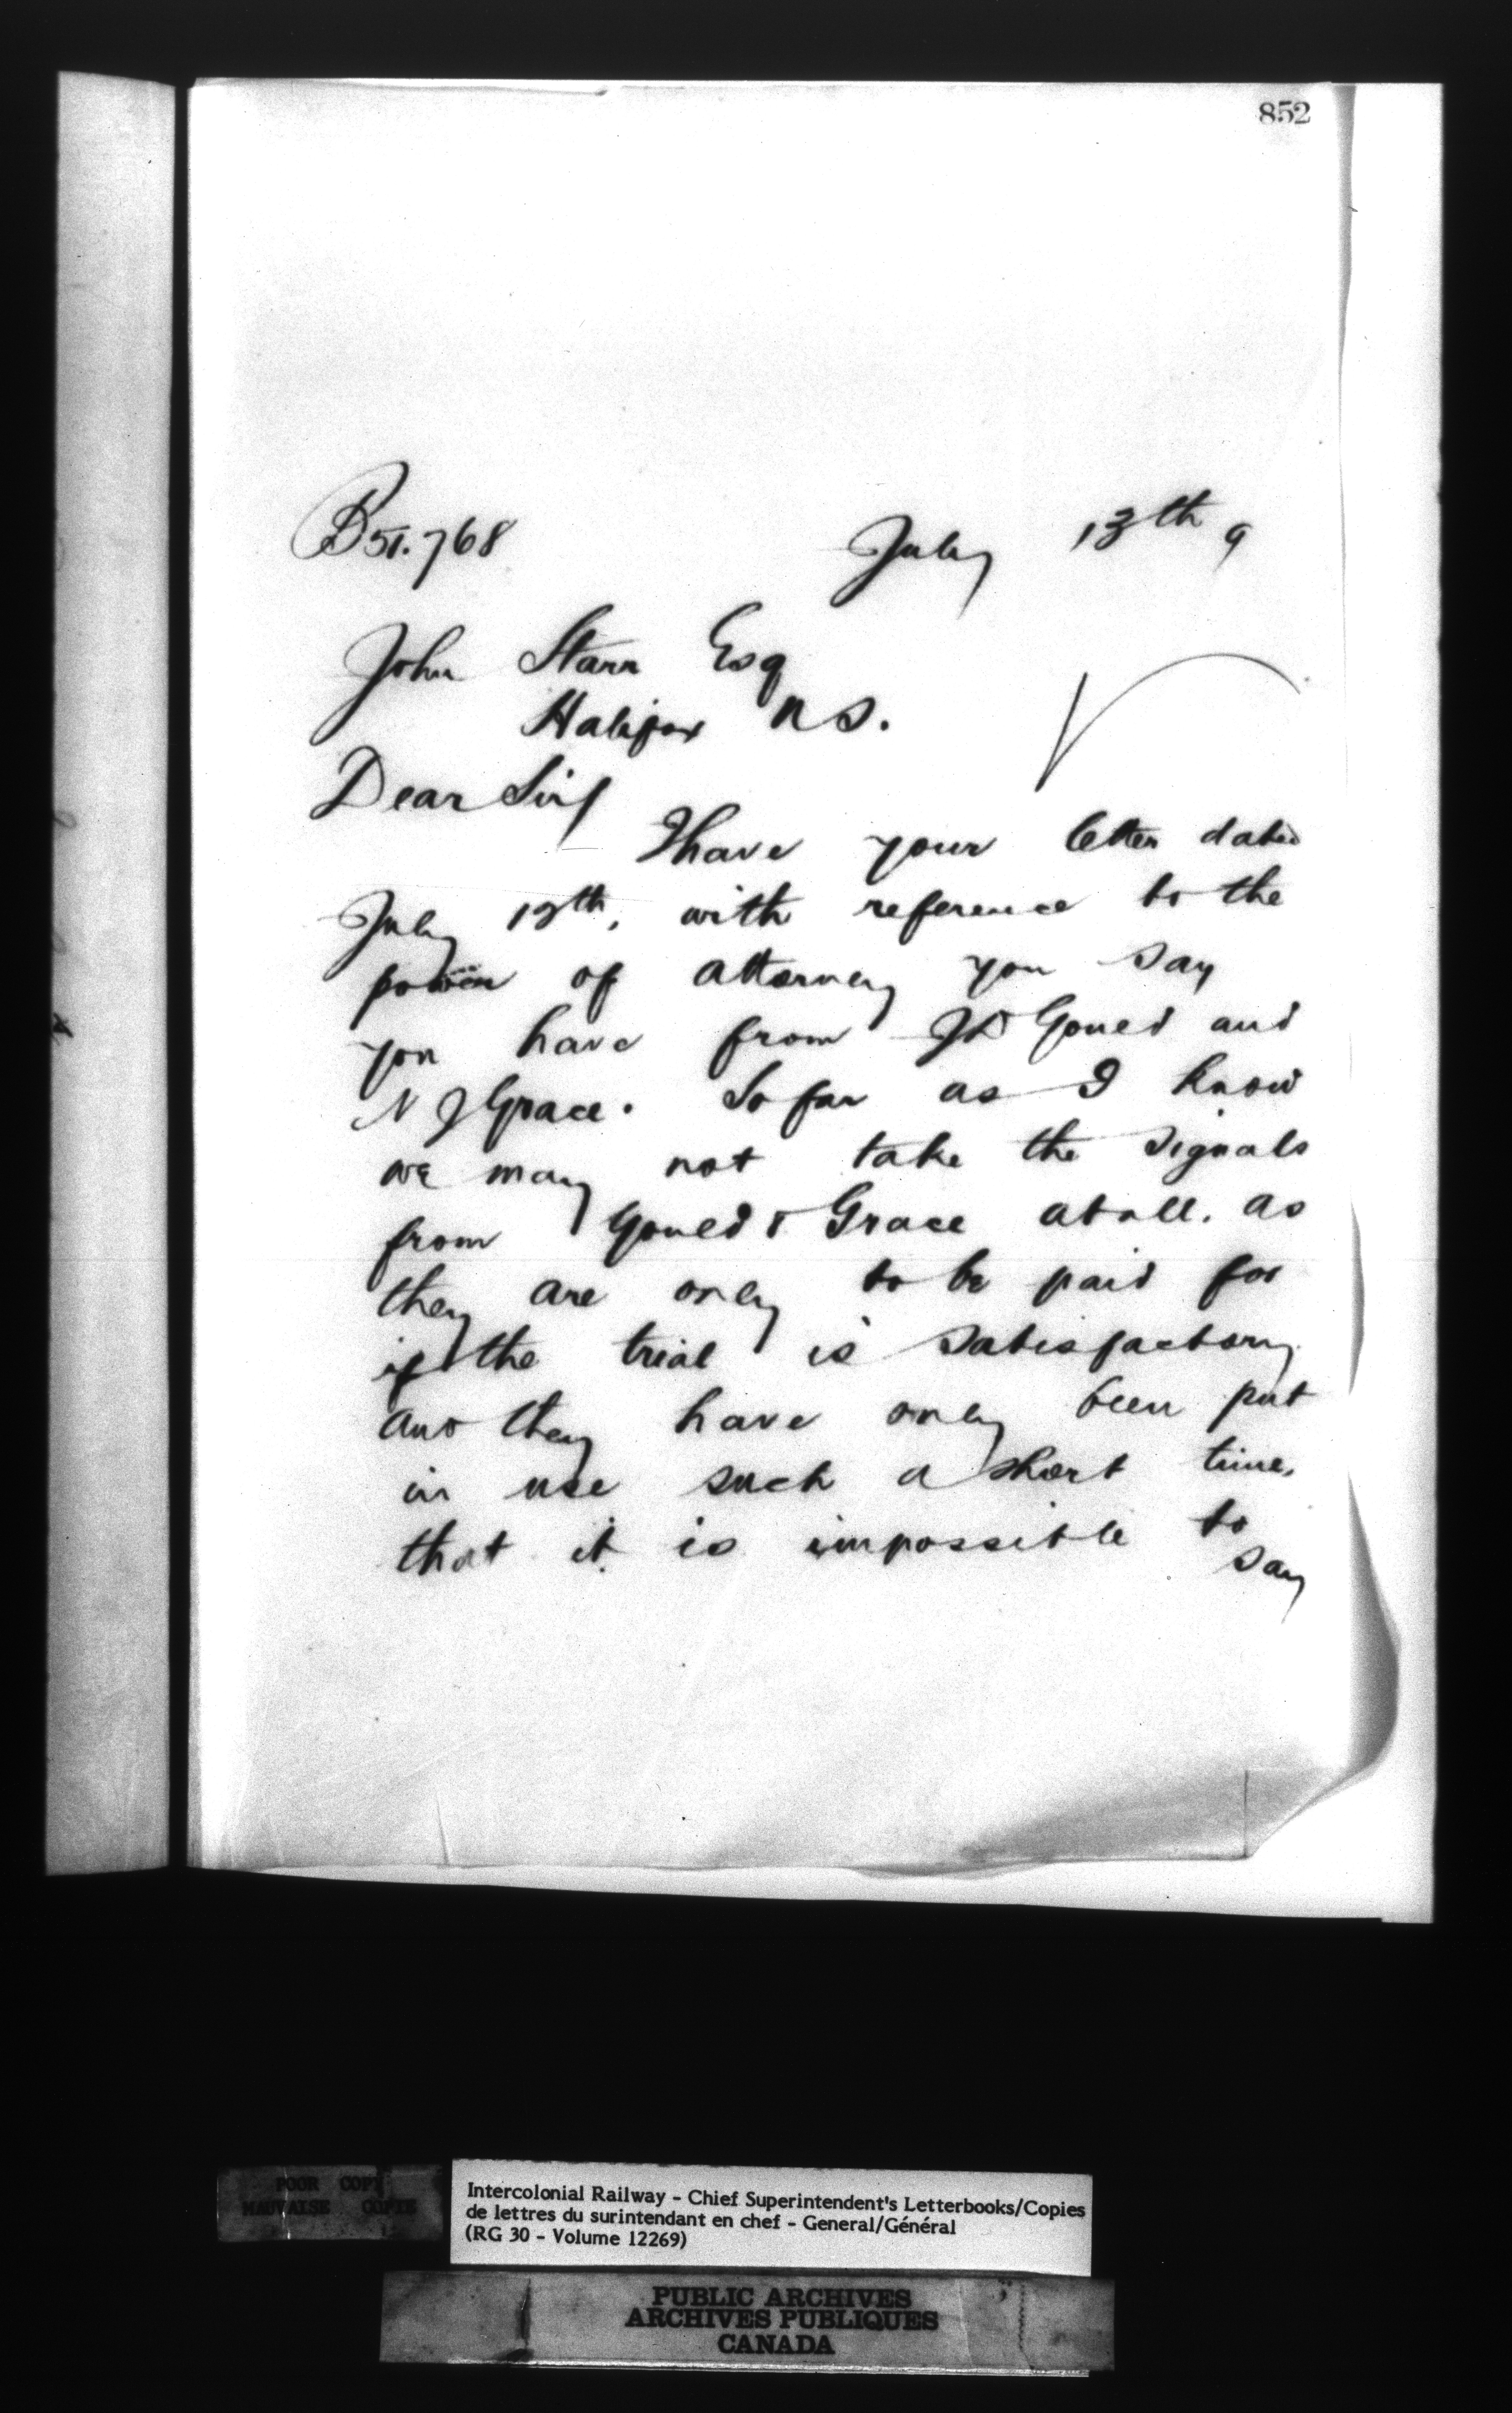 852
B 51.768 July 13th 9
John Starr Esq
Halifax N S.
Dear Sir/
I have your letter dated
July 12th, with reference to the
power of attorney you say
you have from Gould and
N J Grace. So far as I know
we may not take the signals
from Gould & Grace at all. as
they are only to be paid for
if the trial is satisfactory
and they have only been put
in use such a short time,
that it is impossible to
say
POOR COPY
MAUVAISE COPIE
Intercolonial Railway - Chief Superintendent's Letterbooks/Copies
de lettres du surintendant en chef - General/Général
(RG 30 - Volume 12269)
PUBLIC ARCHIVES
ARCHIVES PUBLIQUES
CANADA